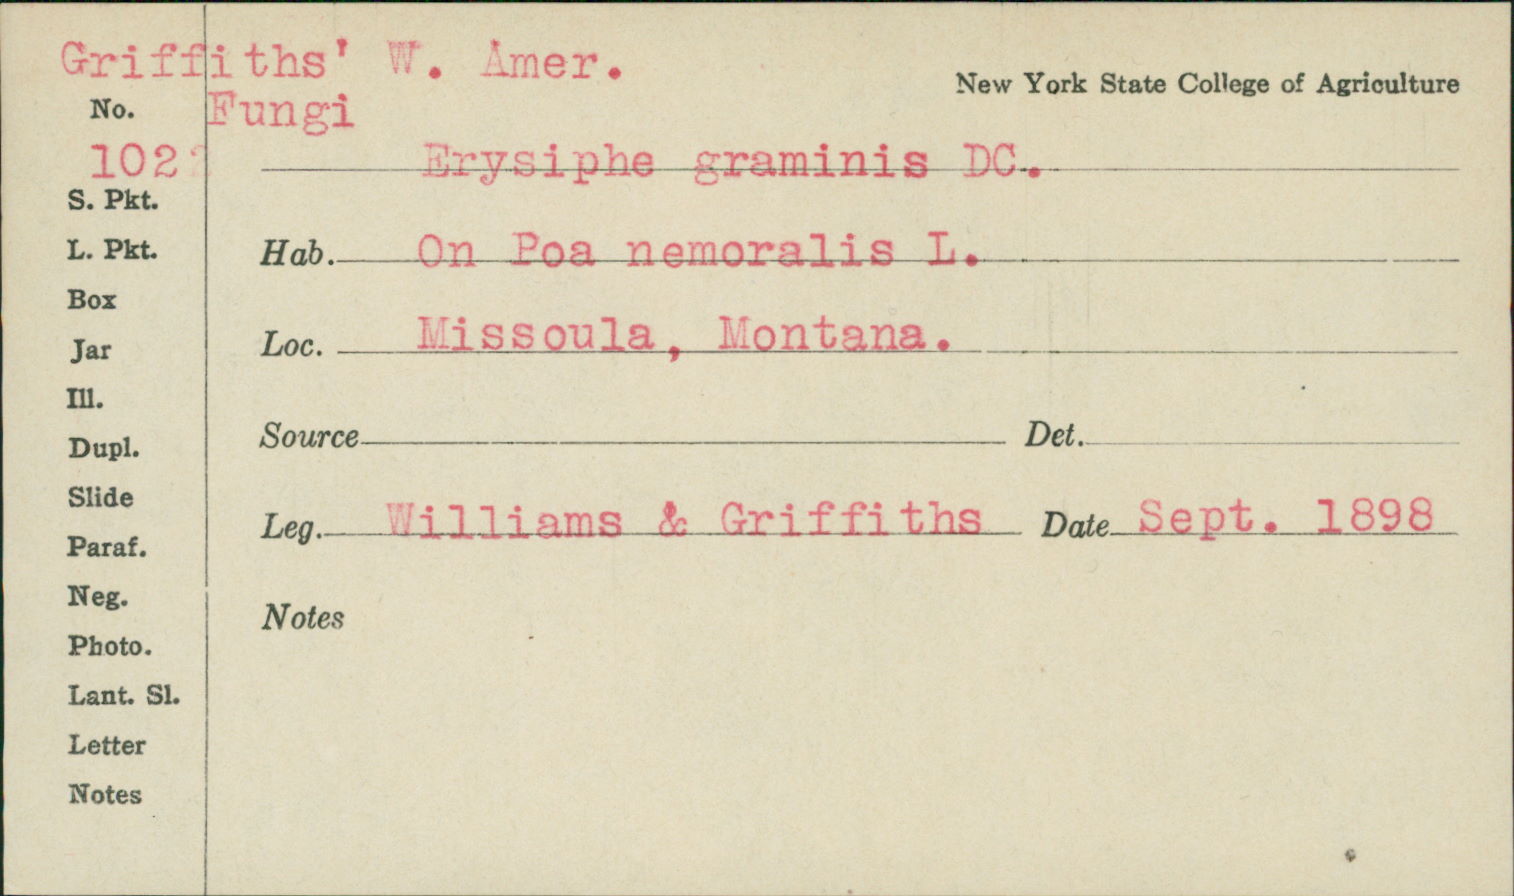 Griffiths' W. Amer.
New York State College of Agriculture
No. Fungi
Erysiphe graminis DC.
S. Pkt.
L. Pkt.
Hab. On Poa nemoralis L.
Box
Jar
Loc. Missoula, Montana.
Ill.
Dupl.
Source Det.
Slide
Leg. Williams & Griffiths Date Sept. 1898
Paraf.
Neg.
Notes
Photo.
Lant. Sl.
Letter
Notes